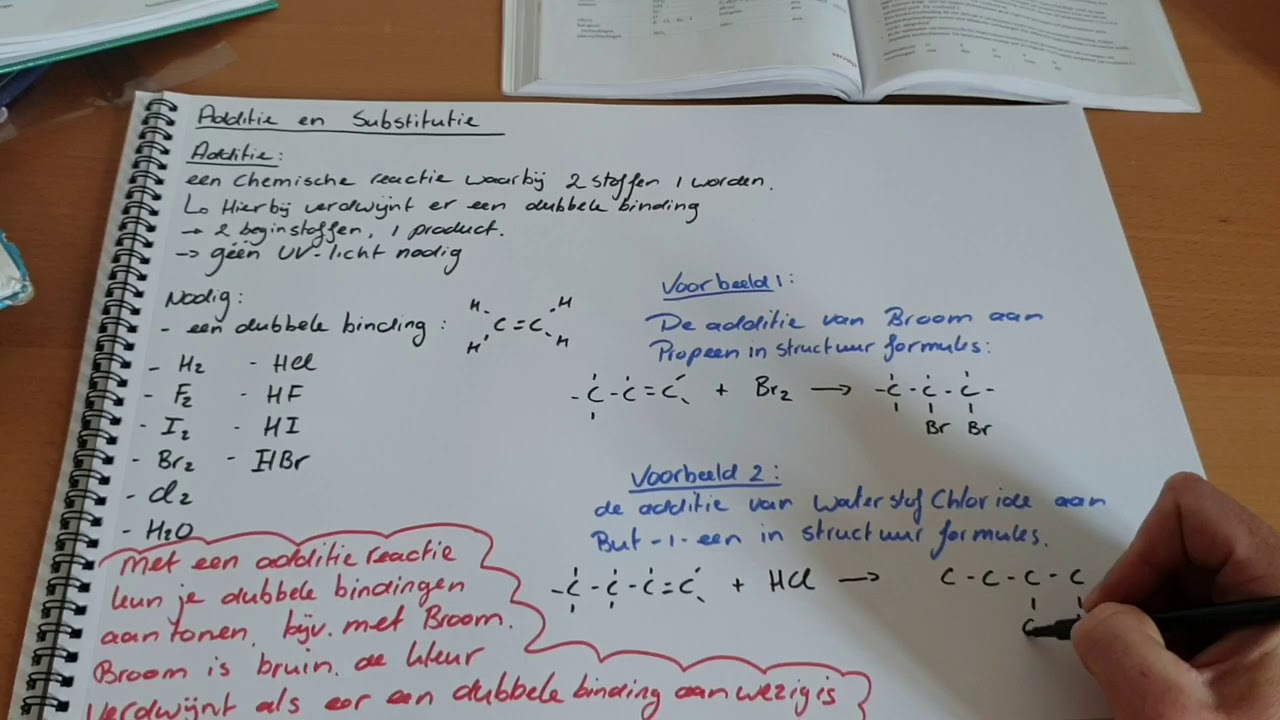 Additie en Substitutie
Additie:
een Chemische reactie waarbij 2 stoffen 1 worden.
↳ Hierbij verdwijnt er een dubbele binding
→ 2 beginstoffen, 1 product.
→ géén UV-licht nodig
Nodig:
- een dubbele binding:
H H
C=C
H H
- H2 - HCl
- F2 - HF
- I2 - HI
- Br2 - HBr
- Cl2
- H2O
Met een additie reactie
kun je dubbele bindingen
aantonen, bijv. met Broom.
Broom is bruin. de kleur
verdwijnt als er een dubbele binding aanwezig is
Voorbeeld 1:
De additie van Broom aan
Propeen in structuur formules:
-C-C=C + Br2 → -C-C-C-
Br Br
Voorbeeld 2:
de additie van Waterstof Chloride aan
But-1-een in structuur formules.
-C-C-C=C + HCl → C-C-C-C